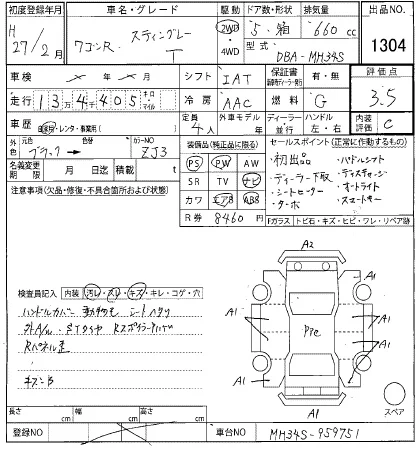 初度登録年月 車名・グレード 駆動 ドア数・形状 排気量 出品NO.
H 27/2月 ワゴンR スティングレー T 2WD 4WD 5・箱 660cc 1304
型式 DBA-MH34S
車検 年 月 シフト IAT 保証書 有・無 評価点
走行 134405 キロ マイル 冷房 AAC 燃料 G 3.5
車歴 自家用・レンタ・事業用( ) 定員 4人 外車モデル年 ディーラー 並行 ハンドル 左・右 内装評価 C
外色 元色 ブラック 色替 カラーNO ZJ3
装備品(純正品に限る) セールスポイント(正常に作動するもの)
名義変更期限 月 日迄 積載量 t
PS PW AW
SR TV ナビ
カワ エアB ABS
R券 8460円
・初出品 ・パドルシフト
・ディーラー下取 ・ディスチャージ
・シートヒーター ・オートライト
・ターボ ・スマートキー
注意事項(欠品・修復・不具合箇所および状態)
Fガラス トビ石・キズ・ヒビ・ワレ・リペア跡
検査員記入 内装 汚レ・スレ・キズ・キレ・コゲ・穴
ハンドルカバー シートヘタリ
外A/W
Rパネル
キズ
A2
A1
A1
A1
A1
A1
A1
A1
スペア
長さ cm 幅 cm 高さ cm
登録NO 車台NO MH34S-959751